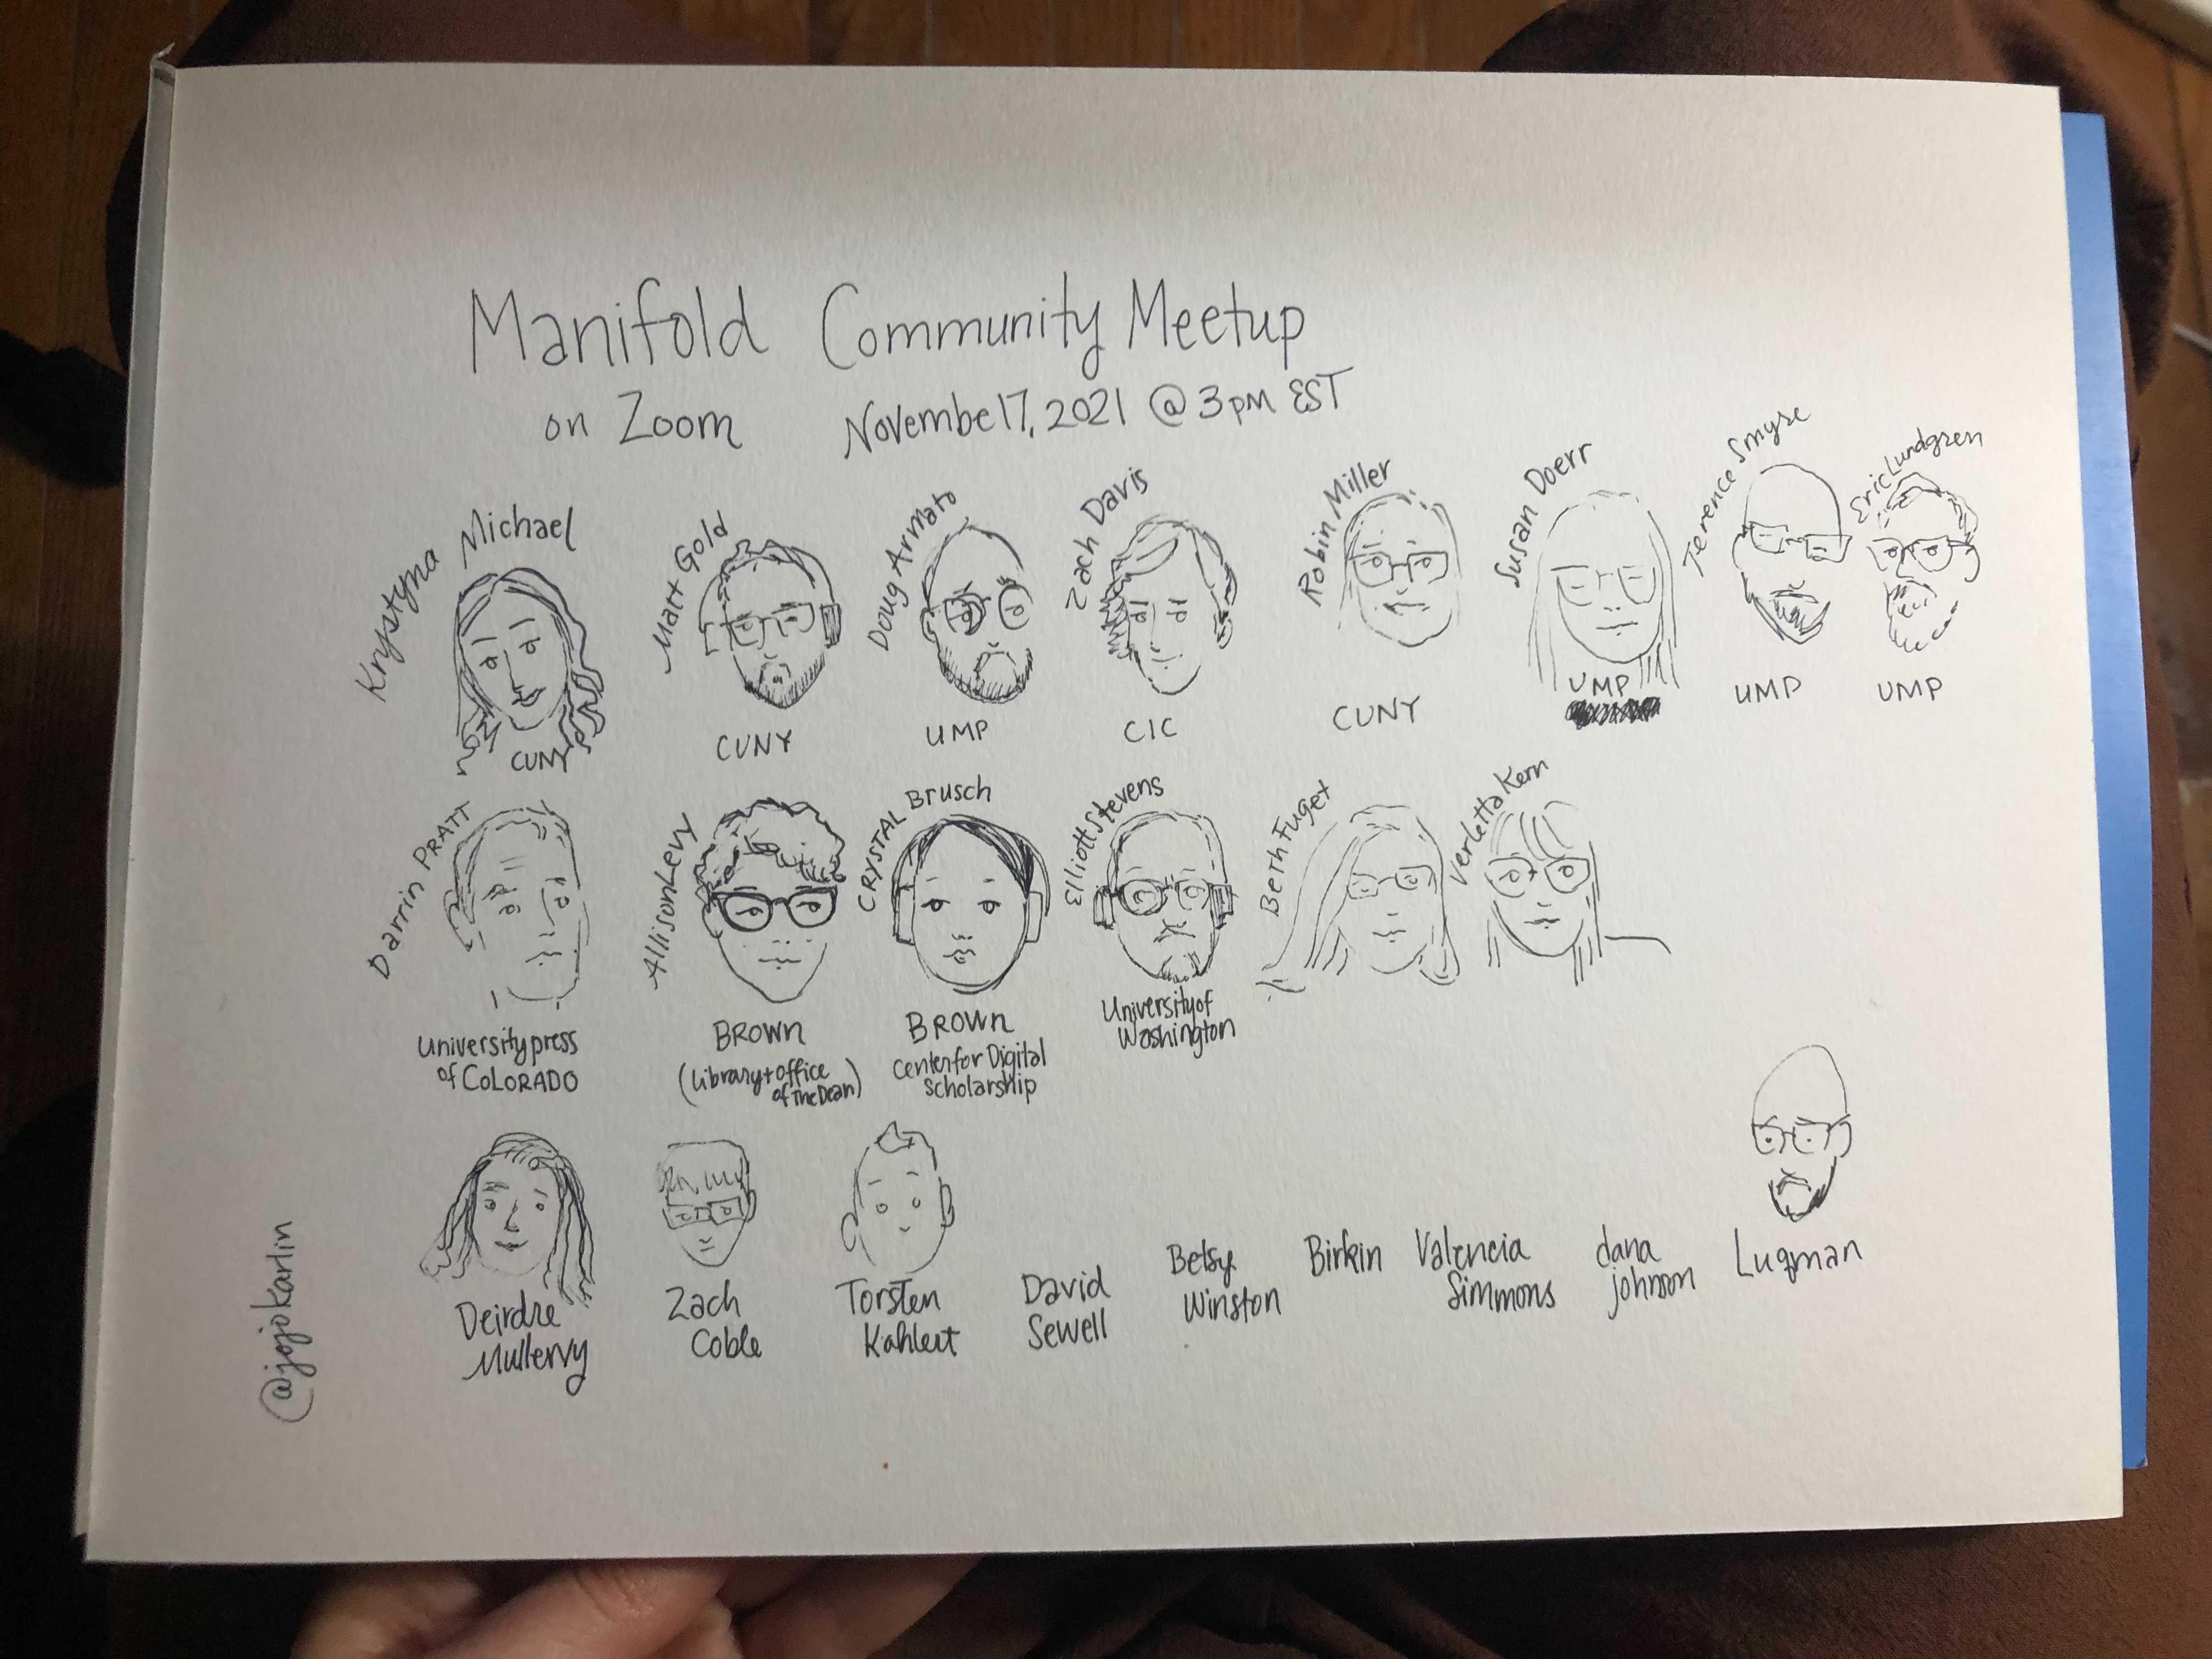 Manifold Community Meetup
on Zoom Novembe17, 2021 @ 3pm EST
Krystyna Michael
CUNY
Matt Gold
CUNY
Doug Armato
UMP
Zach Davis
CIC
Robin Miller
CUNY
Susan Doerr
UMP
Terence Smyre
UMP
Eric Lundgren
UMP
Darrin PRATT
University press
of COLORADO
Allison Levy
BROWN
(Library + office
of The Dean)
CRYSTAL Brusch
BROWN
Center for Digital
Scholarship
Elliott Stevens
University of
Washington
Beth Fuget
Verletta Kern
Deirdre
Mullervy
Zach
Coble
Torsten
Kahlert
David
Sewell
Betsy
Winston
Birkin
Valencia
Simmons
dana
johnson
Luqman
@jojokarlin